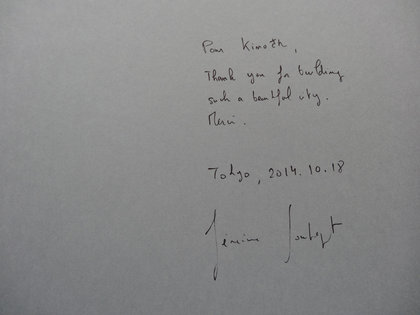 Pour
Thank you for building
such a beautiful city.
Merci.
Tokyo, 2014.10.18